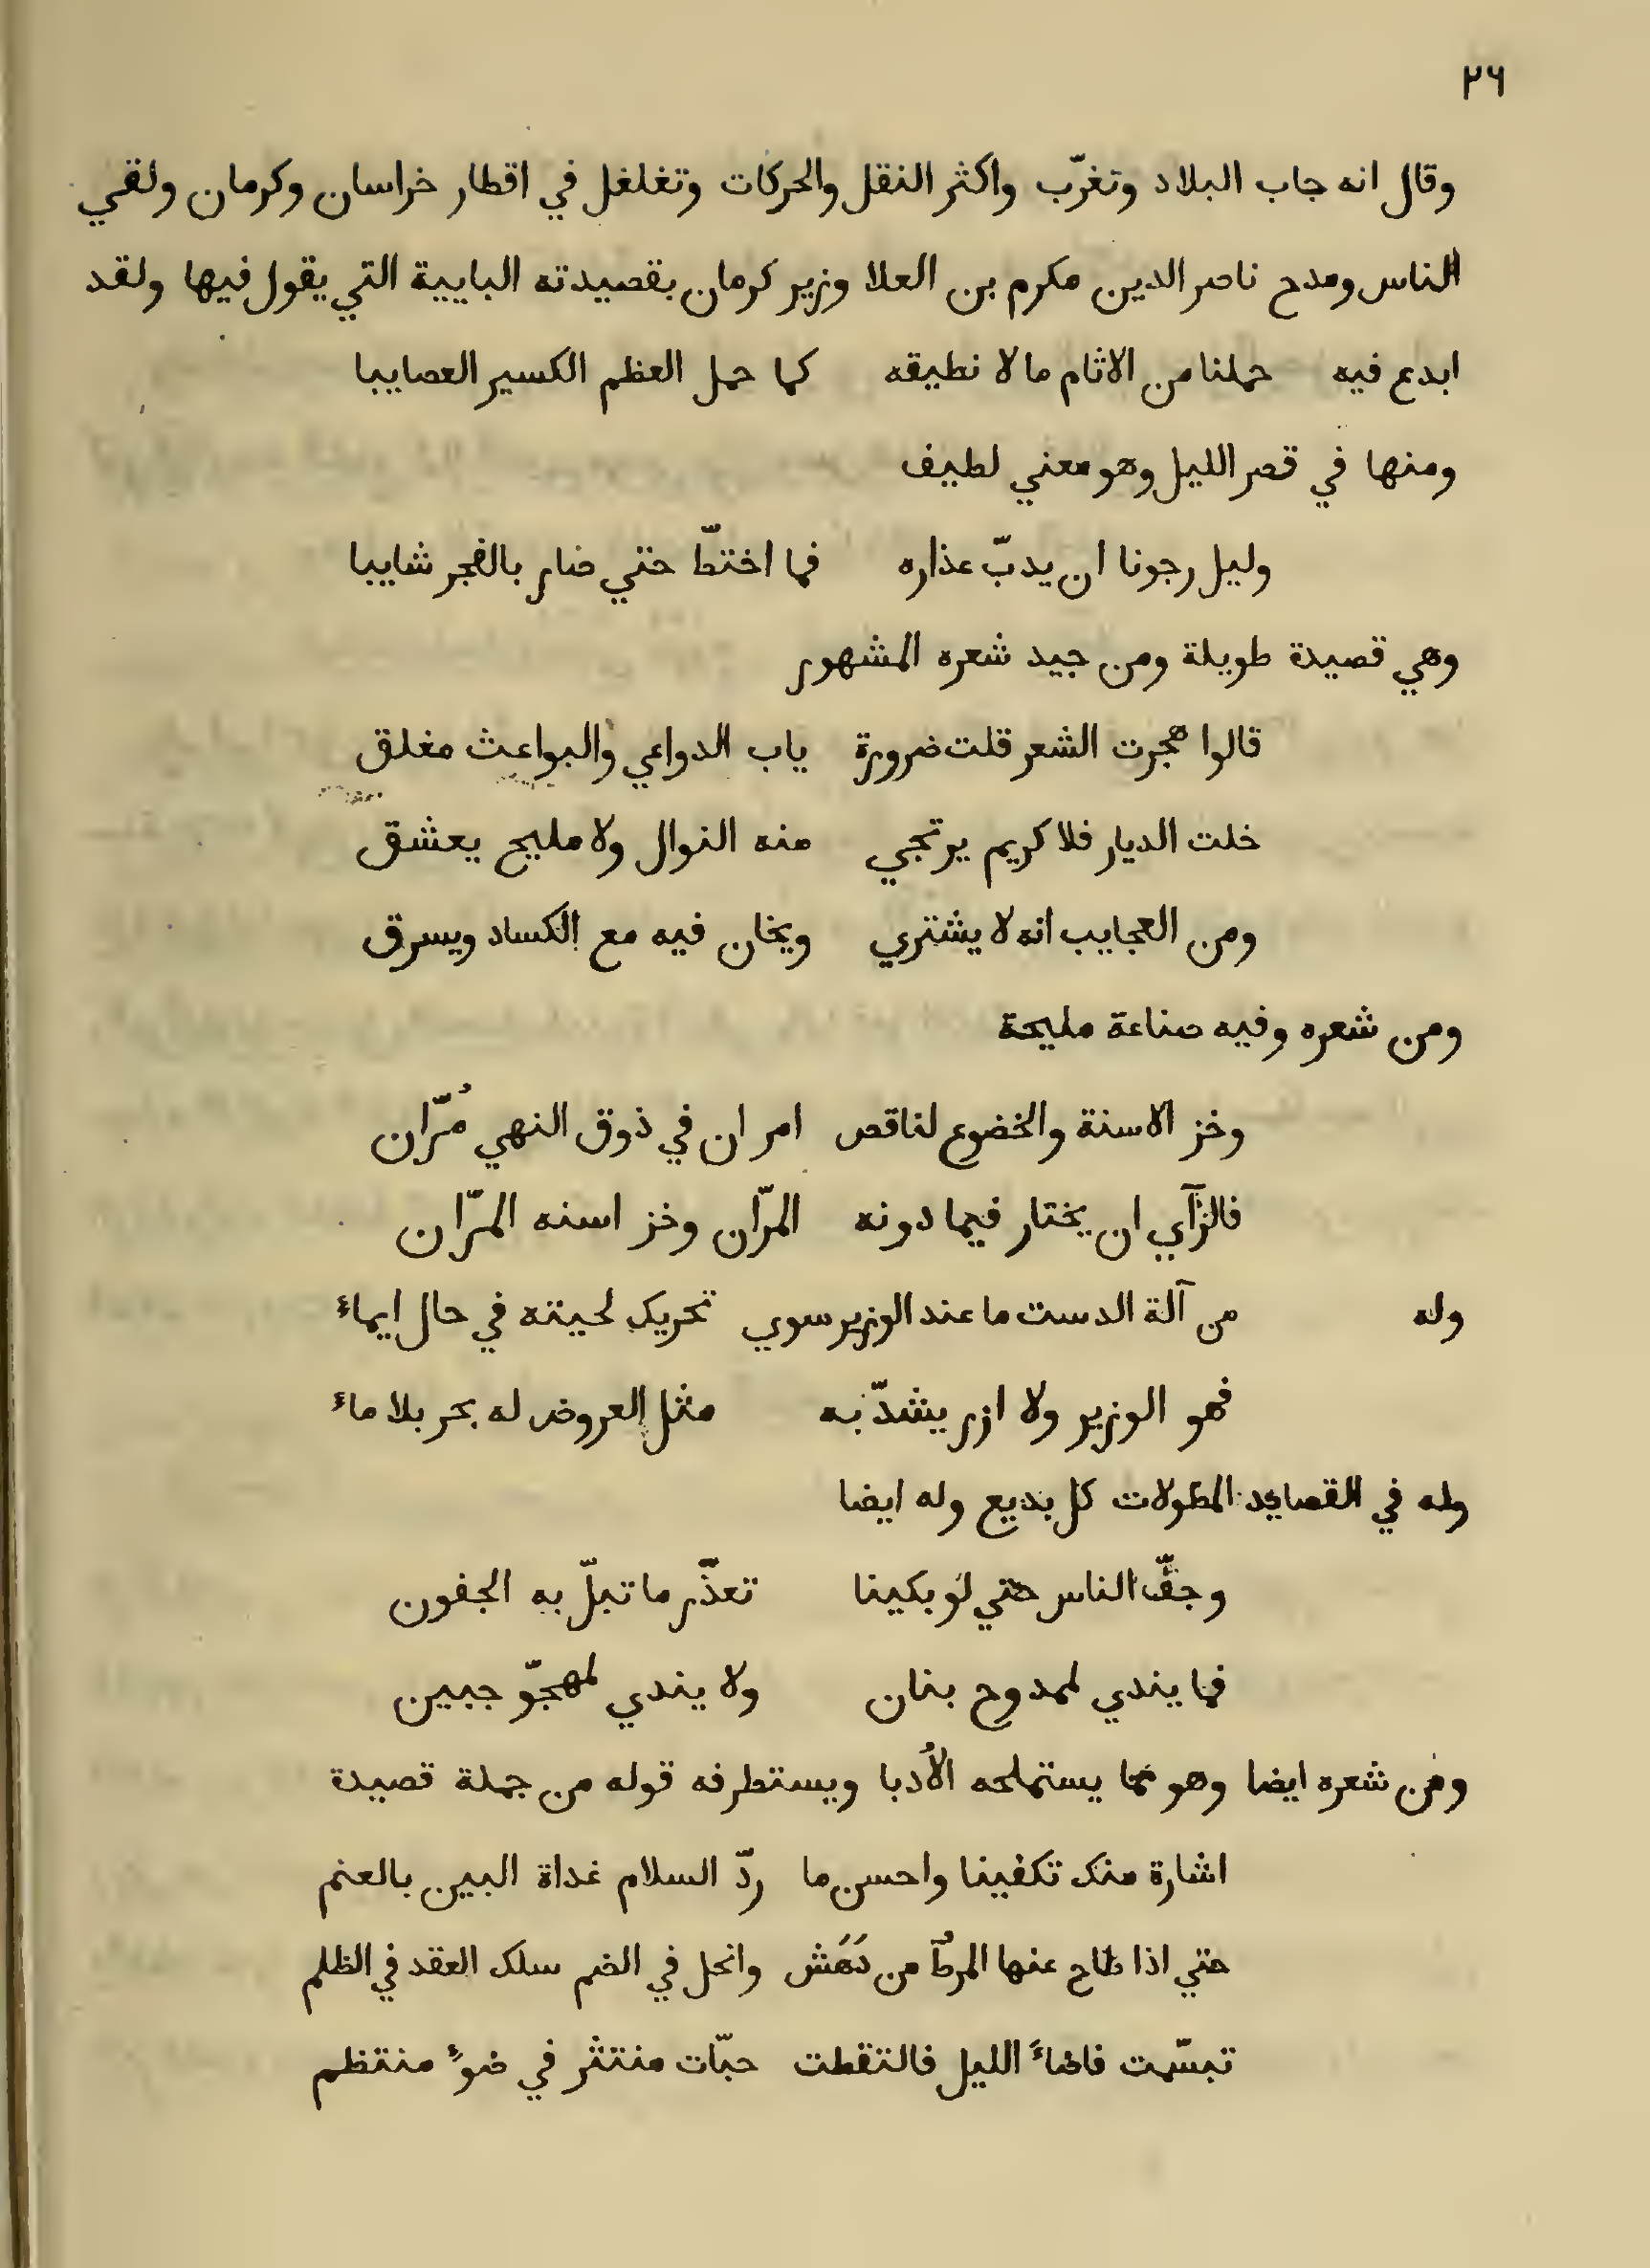 ٢٦
وقال انه جاب البلاد وتغرّب واكثر النقل والحركات وتغلغل في اقطار خراسان وكرمان ولقي
الناس ومدح ناصر الدين مكرم بن العلا وزير كرمان بقصيدته البايية التي يقول فيها ولقد
ابدع فيه حملنا من الاثام ما لا نطيقه كما حمل العظم الكسير العصايبا
ومنها في قصر الليل وهو معني لطيف
وليل رجونا ان يدبّ عذاره فما اختطّ حتي ضار بالفجر شايبا
وهي قصيدة طويلة ومن جيد شعره المشهور
قالوا هجرت الشعر قلت ضرورة ياب الدواعي والبواعث مغلق
خلت الديار فلا كريم يرتجي منه النوال ولا مليح يعشق
ومن العجايب انه لا يشتري ويخان فيه مع الكساد ويسرق
ومن شعره وفيه صناعة مليحة
وخز الاسنة والخضوع لناقص امر ان في ذوق النهي مُرّان
فالرّآي ان يختار فيما دونه المرّان وخز اسنه المرّان
وله من آلة الدست ما عند الوزير سوي تحريك لحيته في حال ايماء
فهو الوزير ولا ازر يشدّ به مثل العروض له بحر بلا ماء
وله في القصايد المطولات كل بديع وله ايضا
وجفّ الناس حتي لو بكينا تعذّر ما تبلّ به الجفون
فما يندي لممدوح بنان ولا يندي لمهجوّ جبين
ومن شعره ايضا وهو مما يستملحه الأدبا ويستطرفه قوله من جملة قصيدة
اشارة منك تكفينا واحسن ما ردّ السلام غداة البين بالعنم
حتي اذا طاح عنها المرط من دَهَش وانحل في الضم سلك العقد في الظلم
تبسّمت فاضاءَ الليل فالتقطت حبّات منتثر في ضوءٍ منتظم